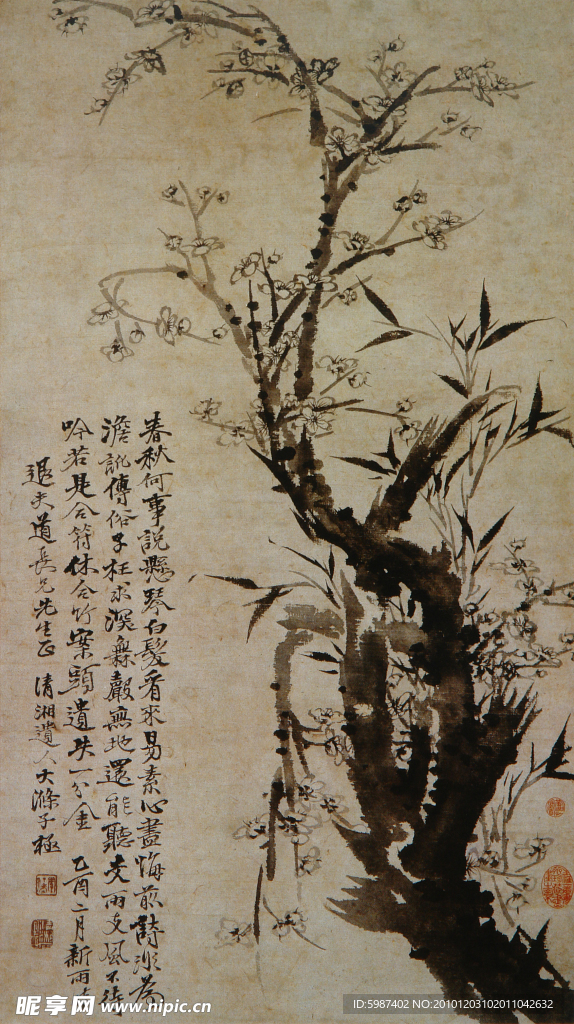 春秋何事說懸琴白髮看來易素心盡悔前詩非為
澹訛傳俗子枉求深無聲無地還能聽支雨支風不待
吟若是合符休合竹案頭遺失一分金 乙酉二月新雨
退夫道長兄先生正 清湘遺人大滌子極
昵享网 www.nipic.cn
ID:5987402 NO:20101203102011042632